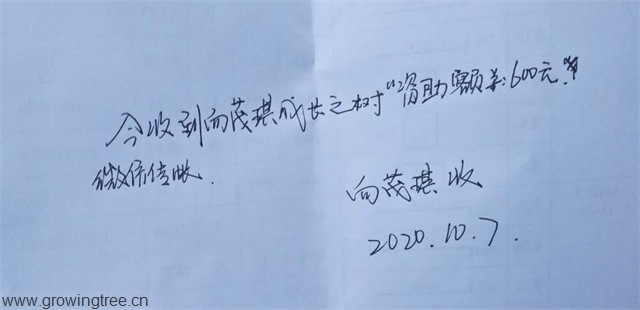 今收到向茂琪成长之树“资助额共:600元.”
微信转账.
向茂琪 收
2020.10.7.
www.growingtree.cn